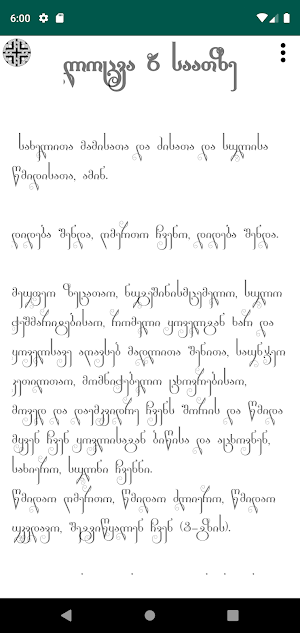 6:00
ლოცვა 6 საათზე
სახელითა მამისათა და ძისათა და სულისა
წმიდისათა, ამინ.
დიდება შენდა, ღმერთო ჩვენო, დიდება შენდა.
მეუფეო ზეცათაო, ნუგეშინისმცემელო, სულო
ჭეშმარიტებისაო, რომელი ყოველგან ხარ და
ყოველსავე აღავსებ მადლითა შენითა, საუნჯეო
კეთილთაო, მომნიჭებელო ცხოვრებისაო,
მოვედ და დაემკვიდრე ჩვენს შორის და წმიდა
მყვენ ჩვენ ყოვლისაგან ბიწისა და აცხოვნენ,
სახიერო, სულნი ჩვენნი.
წმიდაო ღმერთო, წმიდაო ძლიერო, წმიდაო
უკვდავო, შეგვიწყალენ ჩვენ (3-გზის).